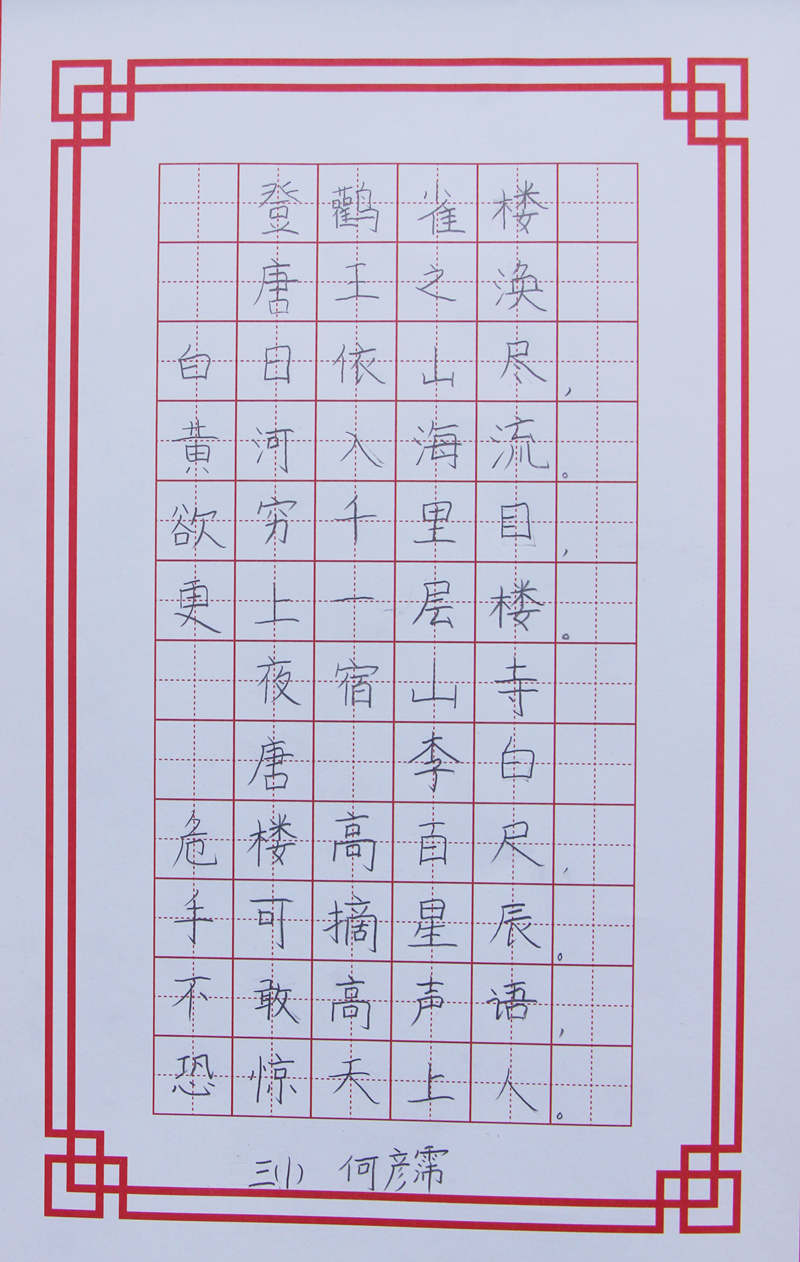 登鸛雀楼
唐王之涣
白日依山尽，
黄河入海流。
欲穷千里目，
更上一层楼。
夜宿山寺
唐 李白
危楼高百尺，
手可摘星辰。
不敢高声语，
恐惊天上人。
三(1) 何彦霈